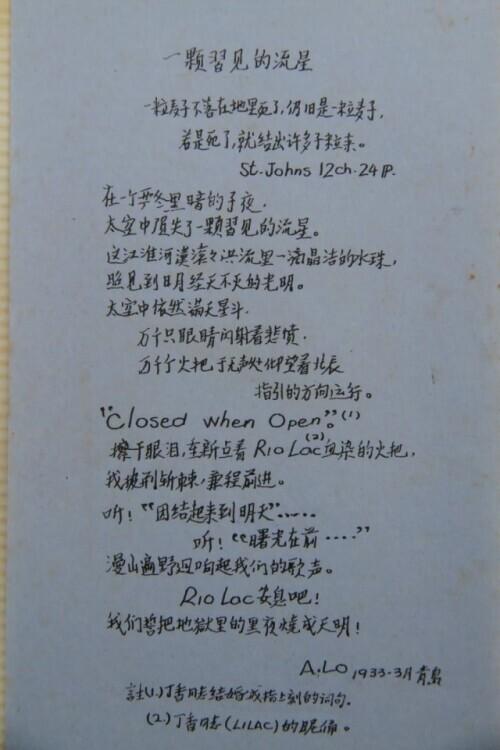 一颗習见的流星
一粒麦子不落在地里死了,仍旧是一粒麦子,
若是死了,就结出许多子粒来。
St. Johns 12ch. 24 P.
在一个严冬黑暗的子夜.
太空中殒失了一颗習见的流星。
这江淮河漢滚々洪流里一滴晶洁的水珠,
照见到日月经天不灭的光明。
太空中依然满天星斗.
万千只眼睛闪射着悲愤.
万千个火把于无声处仰望着北辰
指引的方向运行。
"Closed when Open"。(1)
擦干眼泪,重新点着 Rio Lac(2)血染的火把,
我披荆斩棘,兼程前进。
听!"团结起来到明天"……
听!"曙光在前····"
漫山遍野迴响起我们的歌声。
Rio Lac安息吧!
我们誓把地獄里的黑夜燒成天明!
A.LO 1933-3月青島
註(1.)丁香同志结婚戒指上刻的词句.
(2.)丁香同志(LILAC)的昵偁。